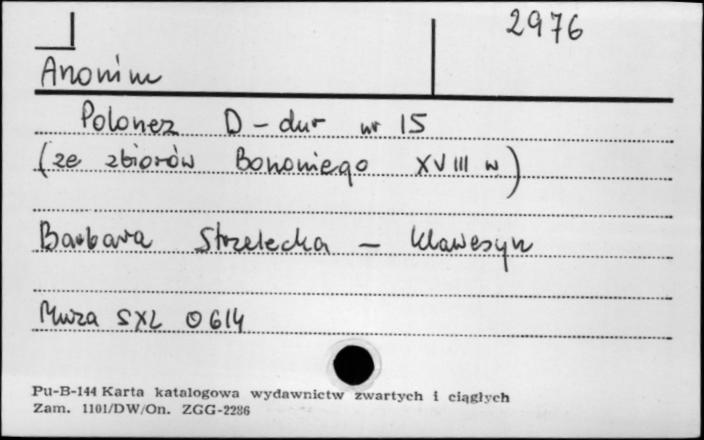 2976
Anonim
Polonez D-dur nr 15
(ze zbiorów Bononiego XVIII w)
Barbara Strzelecka - klawesyn
Muza SXL 0614
Pu-B-144 Karta katalogowa wydawnictw zwartych i ciągłych
Zam. 1101/DW/On. ZGG-2286